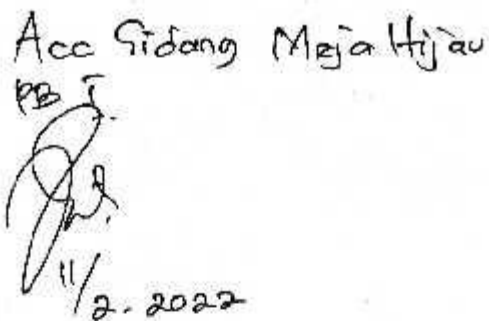 Acc Sidang Meja Hijau
PB I.
11/2.2022